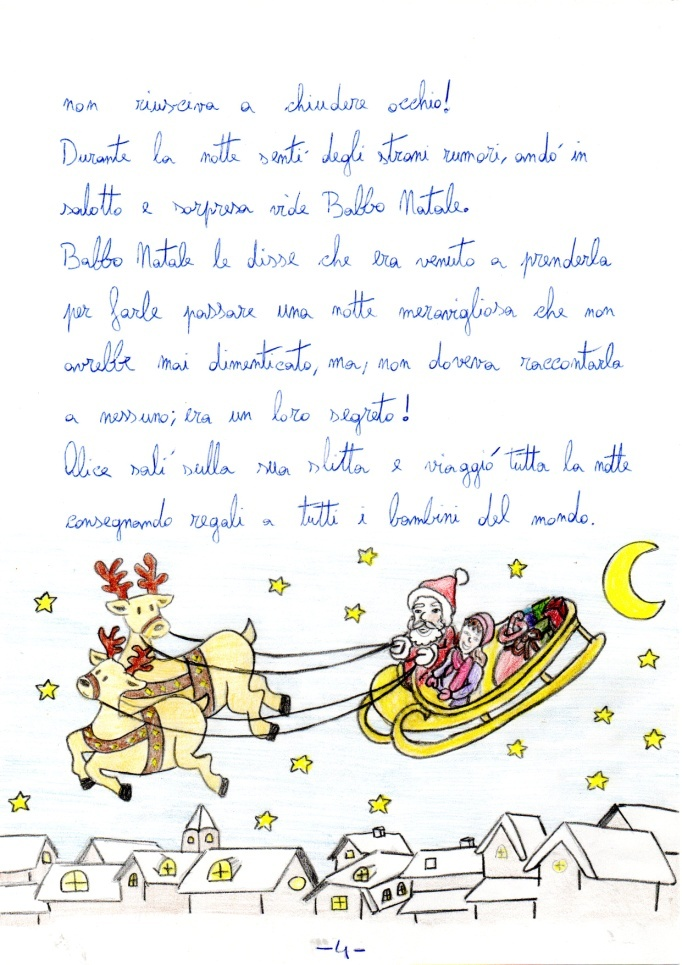 non riusciva a chiudere occhio!
Durante la notte sentì degli strani rumori, andò in
salotto e sorpresa vide Babbo Natale.
Babbo Natale le disse che era venuto a prenderla
per farle passare una notte meravigliosa che non
avrebbe mai dimenticato, ma, non doveva raccontarla
a nessuno; era un loro segreto!
Alice salì sulla sua slitta e viaggiò tutta la notte
consegnando regali a tutti i bambini del mondo.
-4-